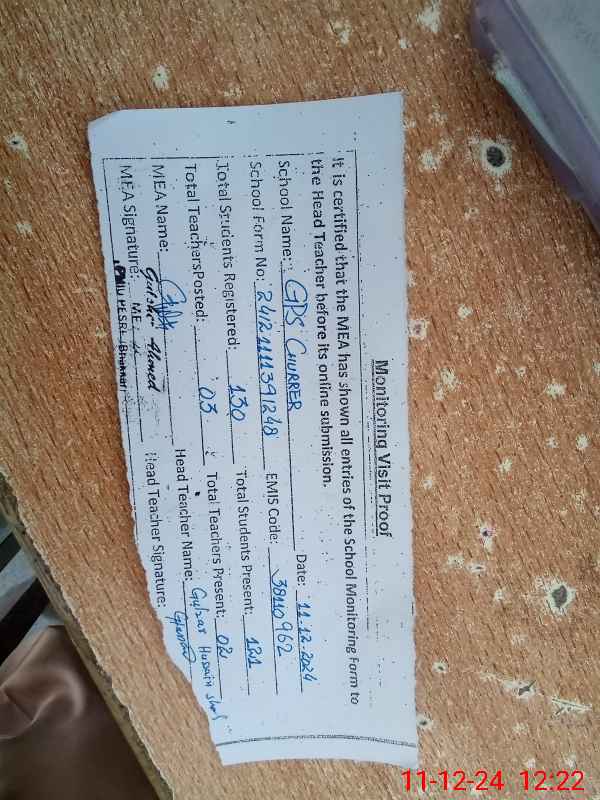 Monitoring Visit Proof
It is certified that the MEA has shown all entries of the School Monitoring Form to
the Head Teacher before its online submission.
Date: 11.12.2024
School Name: GPS CHURRER
School Form No: 2412111391248 EMIS Code: 38110962
Total Students Registered: 130 Total Students Present: 121
Total Teachers Posted: 03 Total Teachers Present: 02
MEA Name: Gulsher Ahmed Head Teacher Name: Gulzar Hussain Shah
MEA Signature: Head Teacher Signature:
MEA
PMIU PESRP Bhakkar
11-12-24 12:22